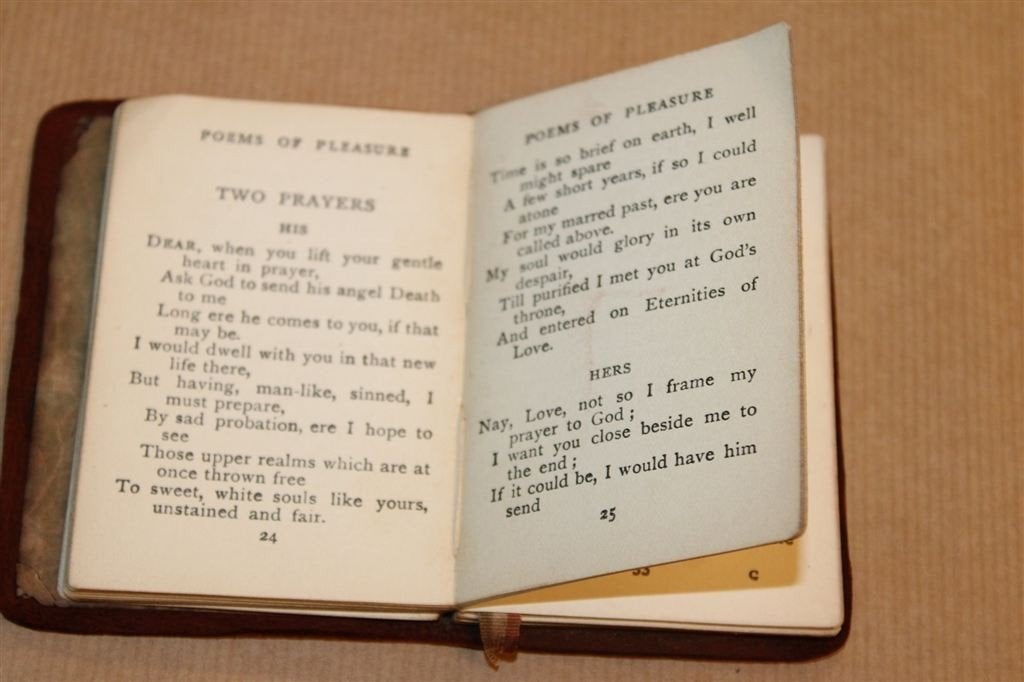 POEMS OF PLEASURE
TWO PRAYERS
HIS
DEAR, when you lift your gentle
heart in prayer,
Ask God to send his angel Death
to me
Long ere he comes to you, if that
may be.
I would dwell with you in that new
life there,
But having, man-like, sinned, I
must prepare,
By sad probation, ere I hope to
see
Those upper realms which are at
once thrown free
To sweet, white souls like yours,
unstained and fair.
24
POEMS OF PLEASURE
Time is so brief on earth, I well
might spare
A few short years, if so I could
atone
For my marred past, ere you are
called above.
My soul would glory in its own
despair,
Till purified I met you at God's
throne,
And entered on Eternities of
Love.
HERS
Nay, Love, not so I frame my
prayer to God;
I want you close beside me to
the end;
If it could be, I would have him
send
25
C